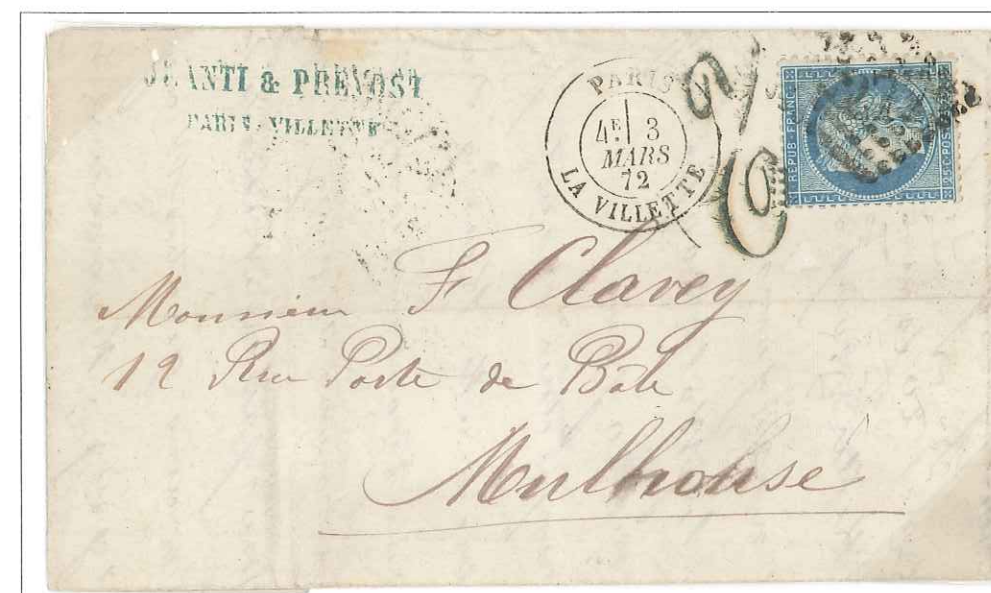 & PREVOST
PARIS-VILLETTE
PARIS
4E 3
MARS
72
LA VILLETTE
REPUB · FRANC ·
25 C · POS
Monsieur F Clavey
12 Rue Porte de Bâle
Mulhouse